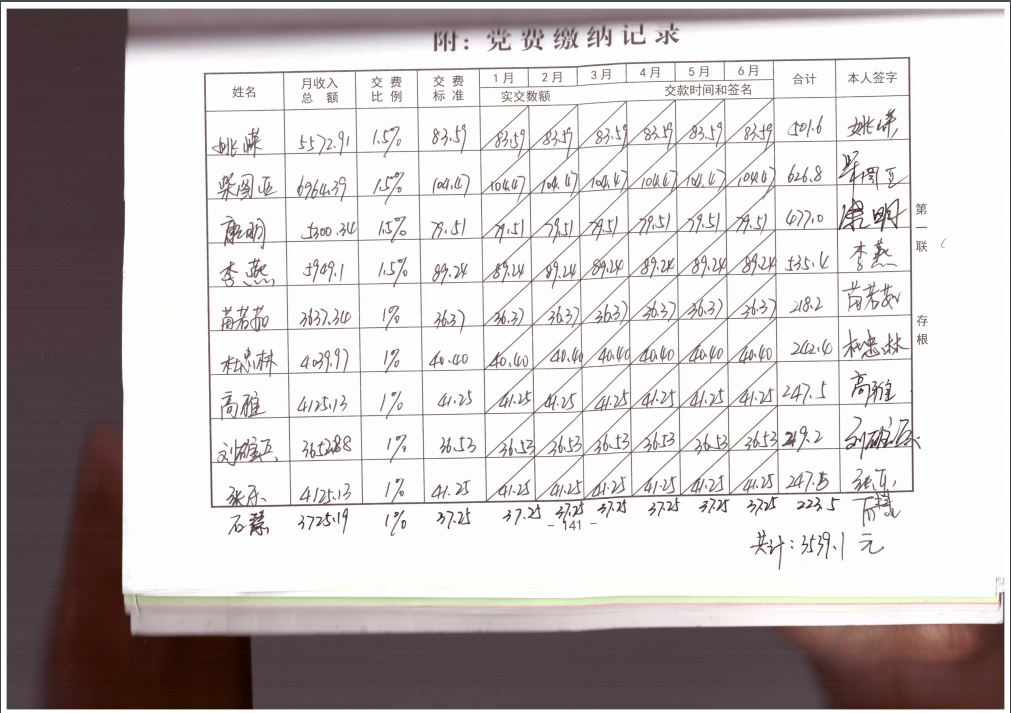 附：党费缴纳记录
姓名 月收入总额 交费比例 交费标准 1月 2月 3月 4月 5月 6月 合计 本人签字
实交数额 交款时间和签名
姚嵘 5572.91 1.5% 83.59 83.59 83.59 83.59 83.59 83.59 83.59 501.6 姚嵘
柴图亚 6964.39 1.5% 104.47 104.47 104.47 104.47 104.47 104.47 104.47 626.8 柴图亚
康明 5300.34 1.5% 79.51 79.51 79.51 79.51 79.51 79.51 79.51 477.0 康明
李燕 5949.1 1.5% 89.24 89.24 89.24 89.24 89.24 89.24 89.24 535.4 李燕
苗若茹 3637.34 1% 36.37 36.37 36.37 36.37 36.37 36.37 36.37 218.2 苗若茹
杜忠林 4039.97 1% 40.40 40.40 40.40 40.40 40.40 40.40 40.40 242.4 杜忠林
高雅 4125.13 1% 41.25 41.25 41.25 41.25 41.25 41.25 41.25 247.5 高雅
刘 3652.88 1% 36.53 36.53 36.53 36.53 36.53 36.53 36.53 219.2 刘
张乐 4125.13 1% 41.25 41.25 41.25 41.25 41.25 41.25 41.25 247.5 张乐
石慧 3725.19 1% 37.25 37.25 37.25 37.25 37.25 37.25 37.25 223.5 石慧
- 141 -
共计：3539.1 元
第一联
存根